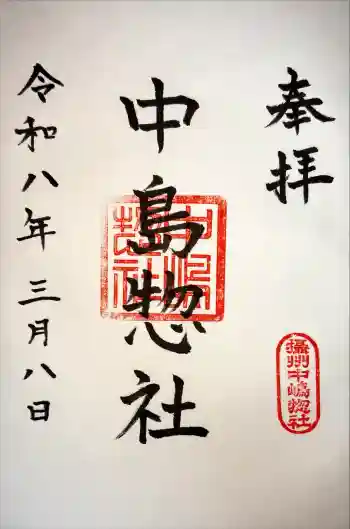 奉拝
摂州中嶋惣社
中島惣社
中嶋惣社
令和八年三月八日